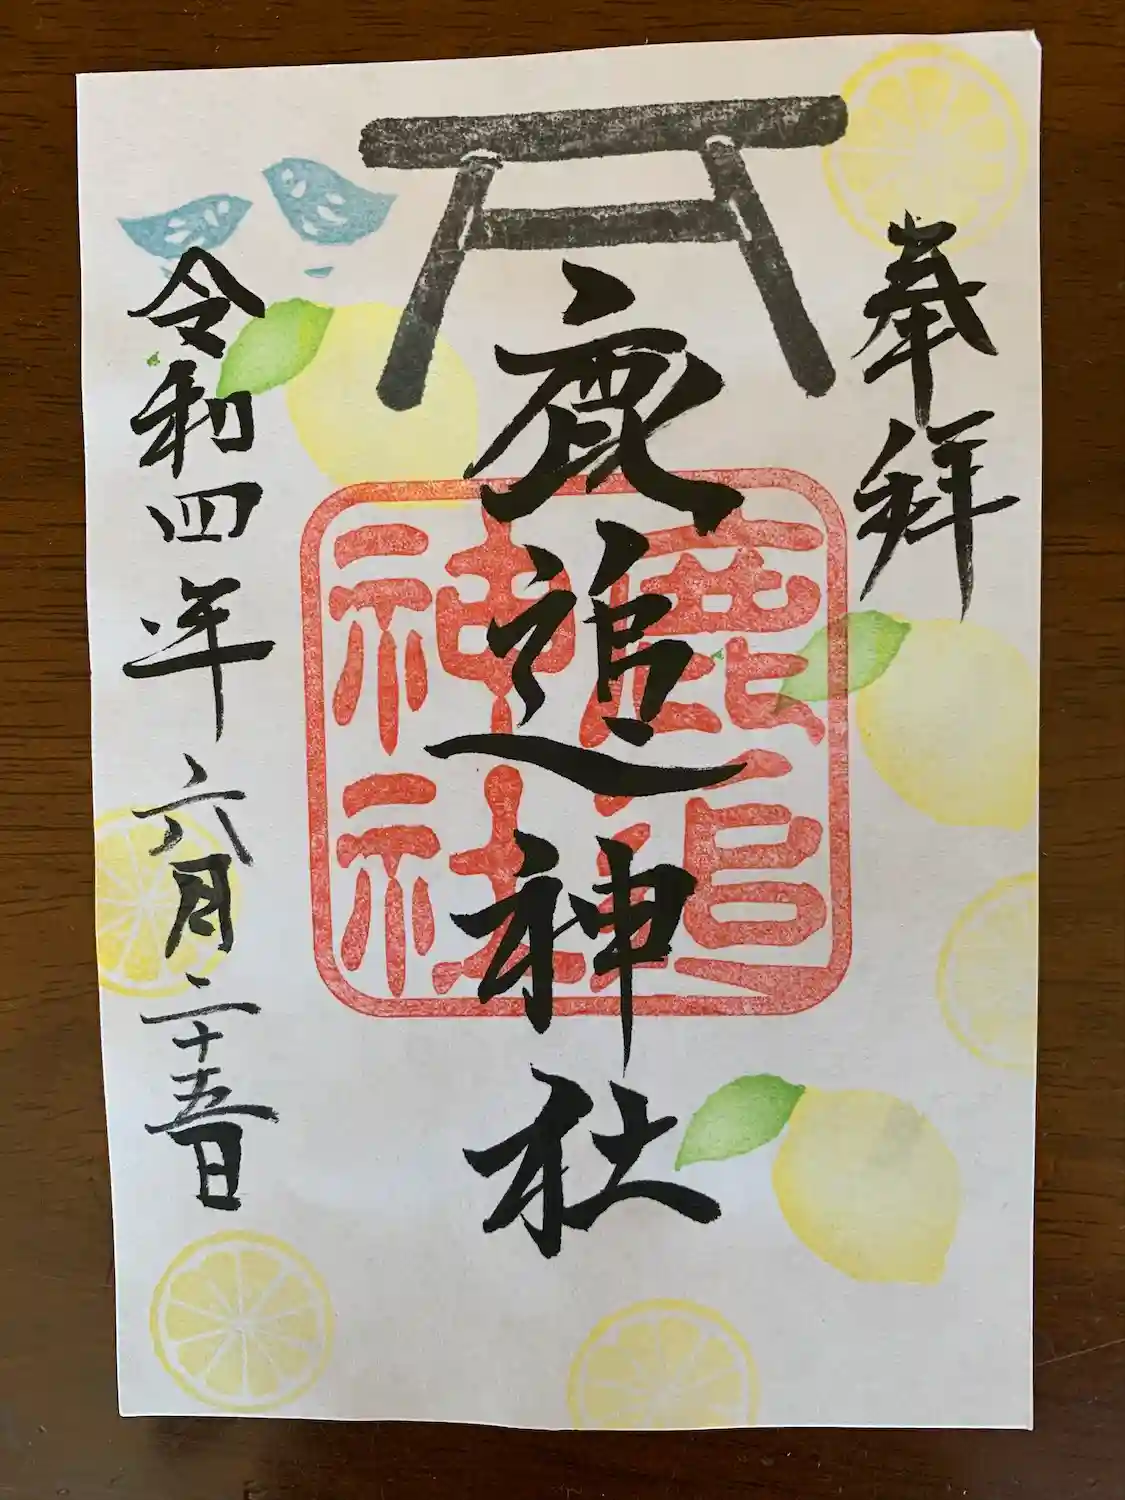 奉拜
鹿追神社
鹿追
神社
令和四年六月二十五日